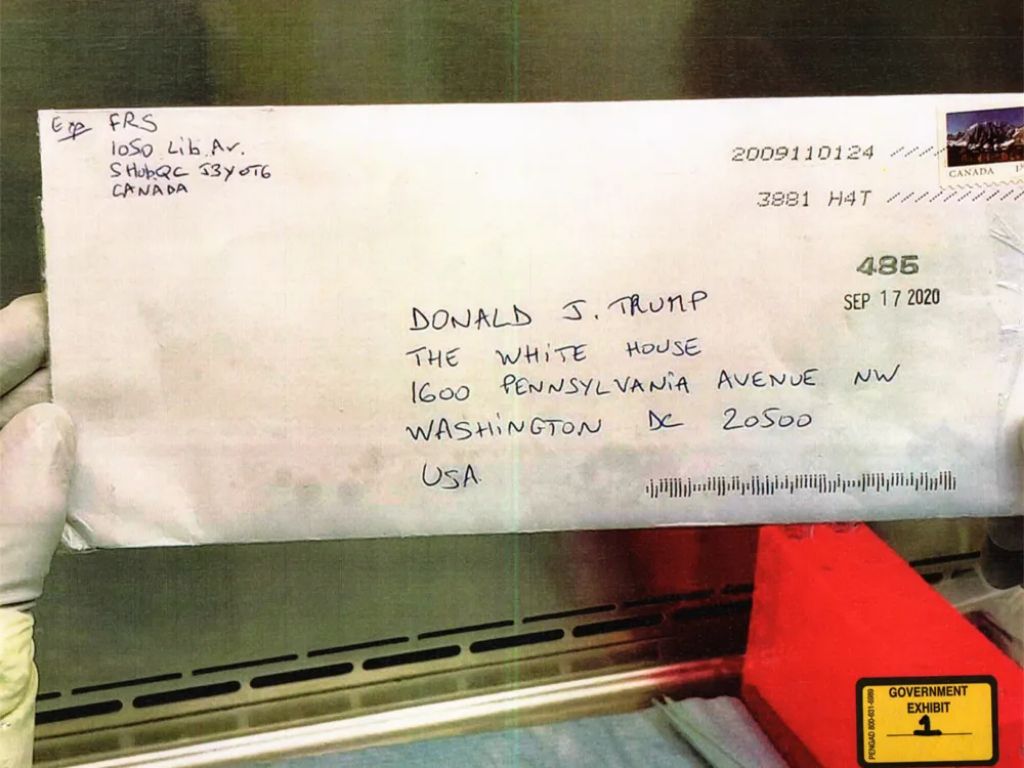 Exp FRS
1050 Lib. Av.
SHub QC J3Y 0T6
CANADA
2009110124
3881 H4T
CANADA
485
SEP 17 2020
DONALD J. TRUMP
THE WHITE HOUSE
1600 PENNSYLVANIA AVENUE NW
WASHINGTON DC 20500
USA
GOVERNMENT
EXHIBIT
1